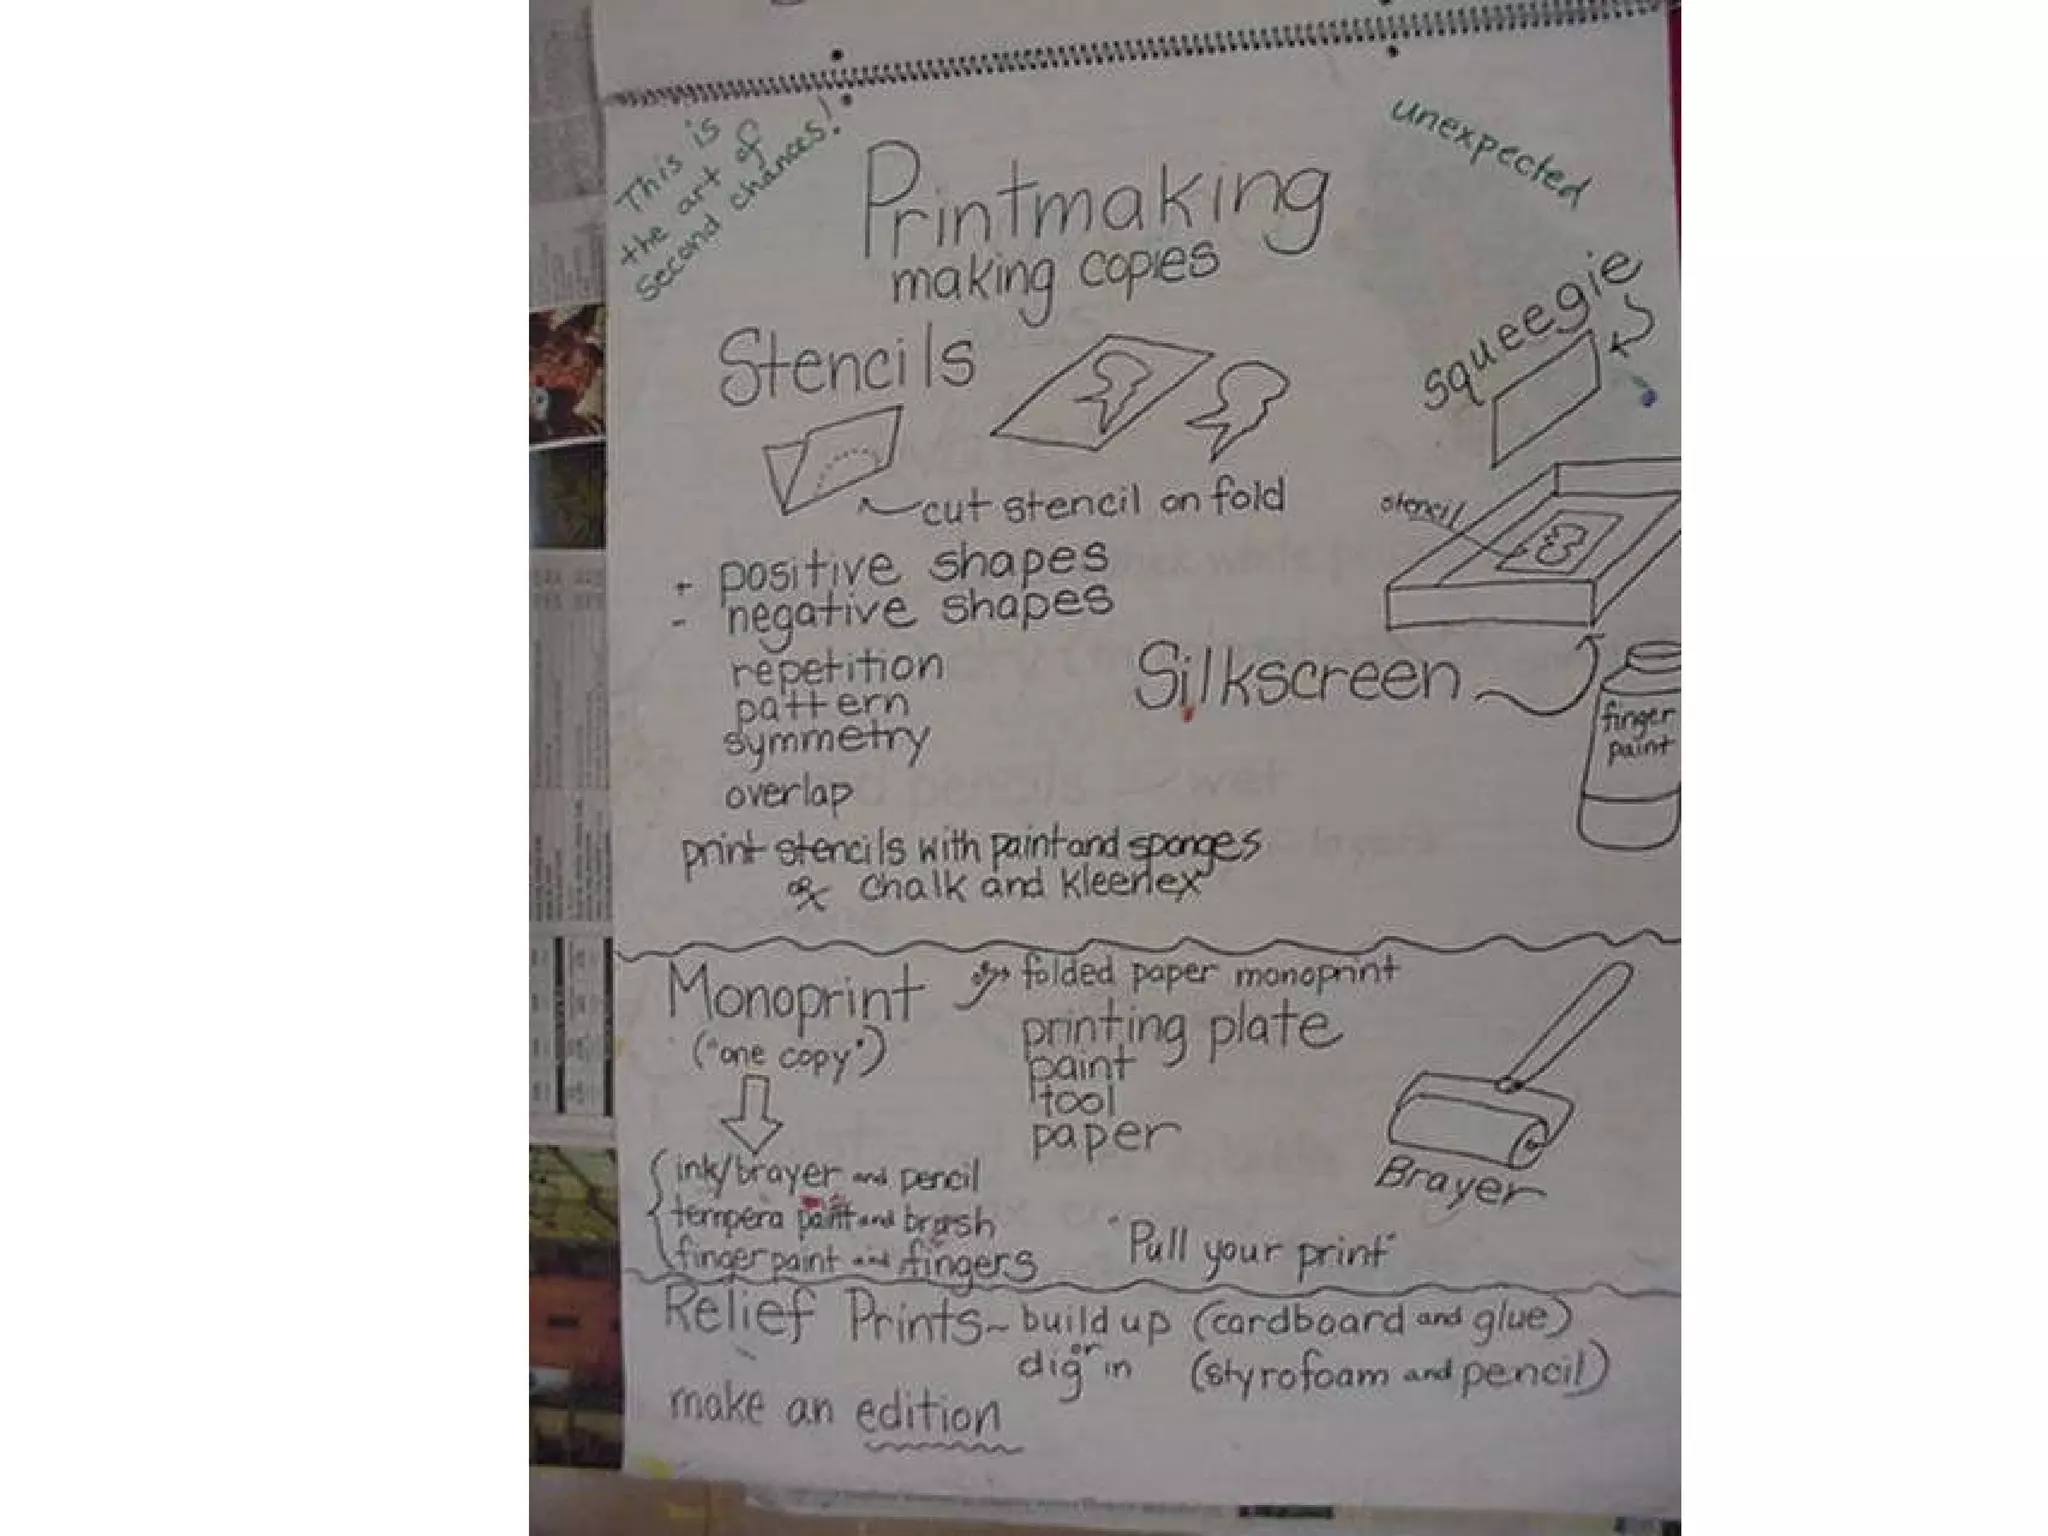 This is
the art of
second chances!
unexpected
Printmaking
making copies
Stencils
squeegie
cut stencil on fold
stencil
+ positive shapes
- negative shapes
repetition
pattern
symmetry
overlap
Silkscreen
finger
paint
print stencils with paint and sponges
or chalk and kleenex
Monoprint
("one copy")
folded paper monoprint
printing plate
paint
tool
paper
Brayer
ink/brayer and pencil
tempera paint and brush
fingerpaint and fingers
"Pull your print"
Relief Prints~ build up (cardboard and glue)
or
dig in (styrofoam and pencil)
make an edition